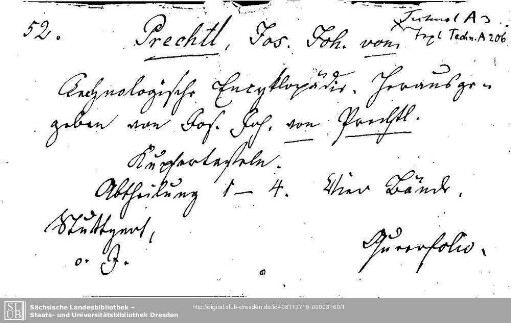 52.
Technol A
Prechtl, Jos. Joh. von
Techn. A 206
Technologische Encyklopädie. Herausge-
geben von Jos. Joh. von Prechtl.
Kupfertafeln.
Abtheilung 1–4. Vier Bände.
Stuttgart,
o. J.
Querfolio.
Sächsische Landesbibliothek –
Staats- und Universitätsbibliothek Dresden